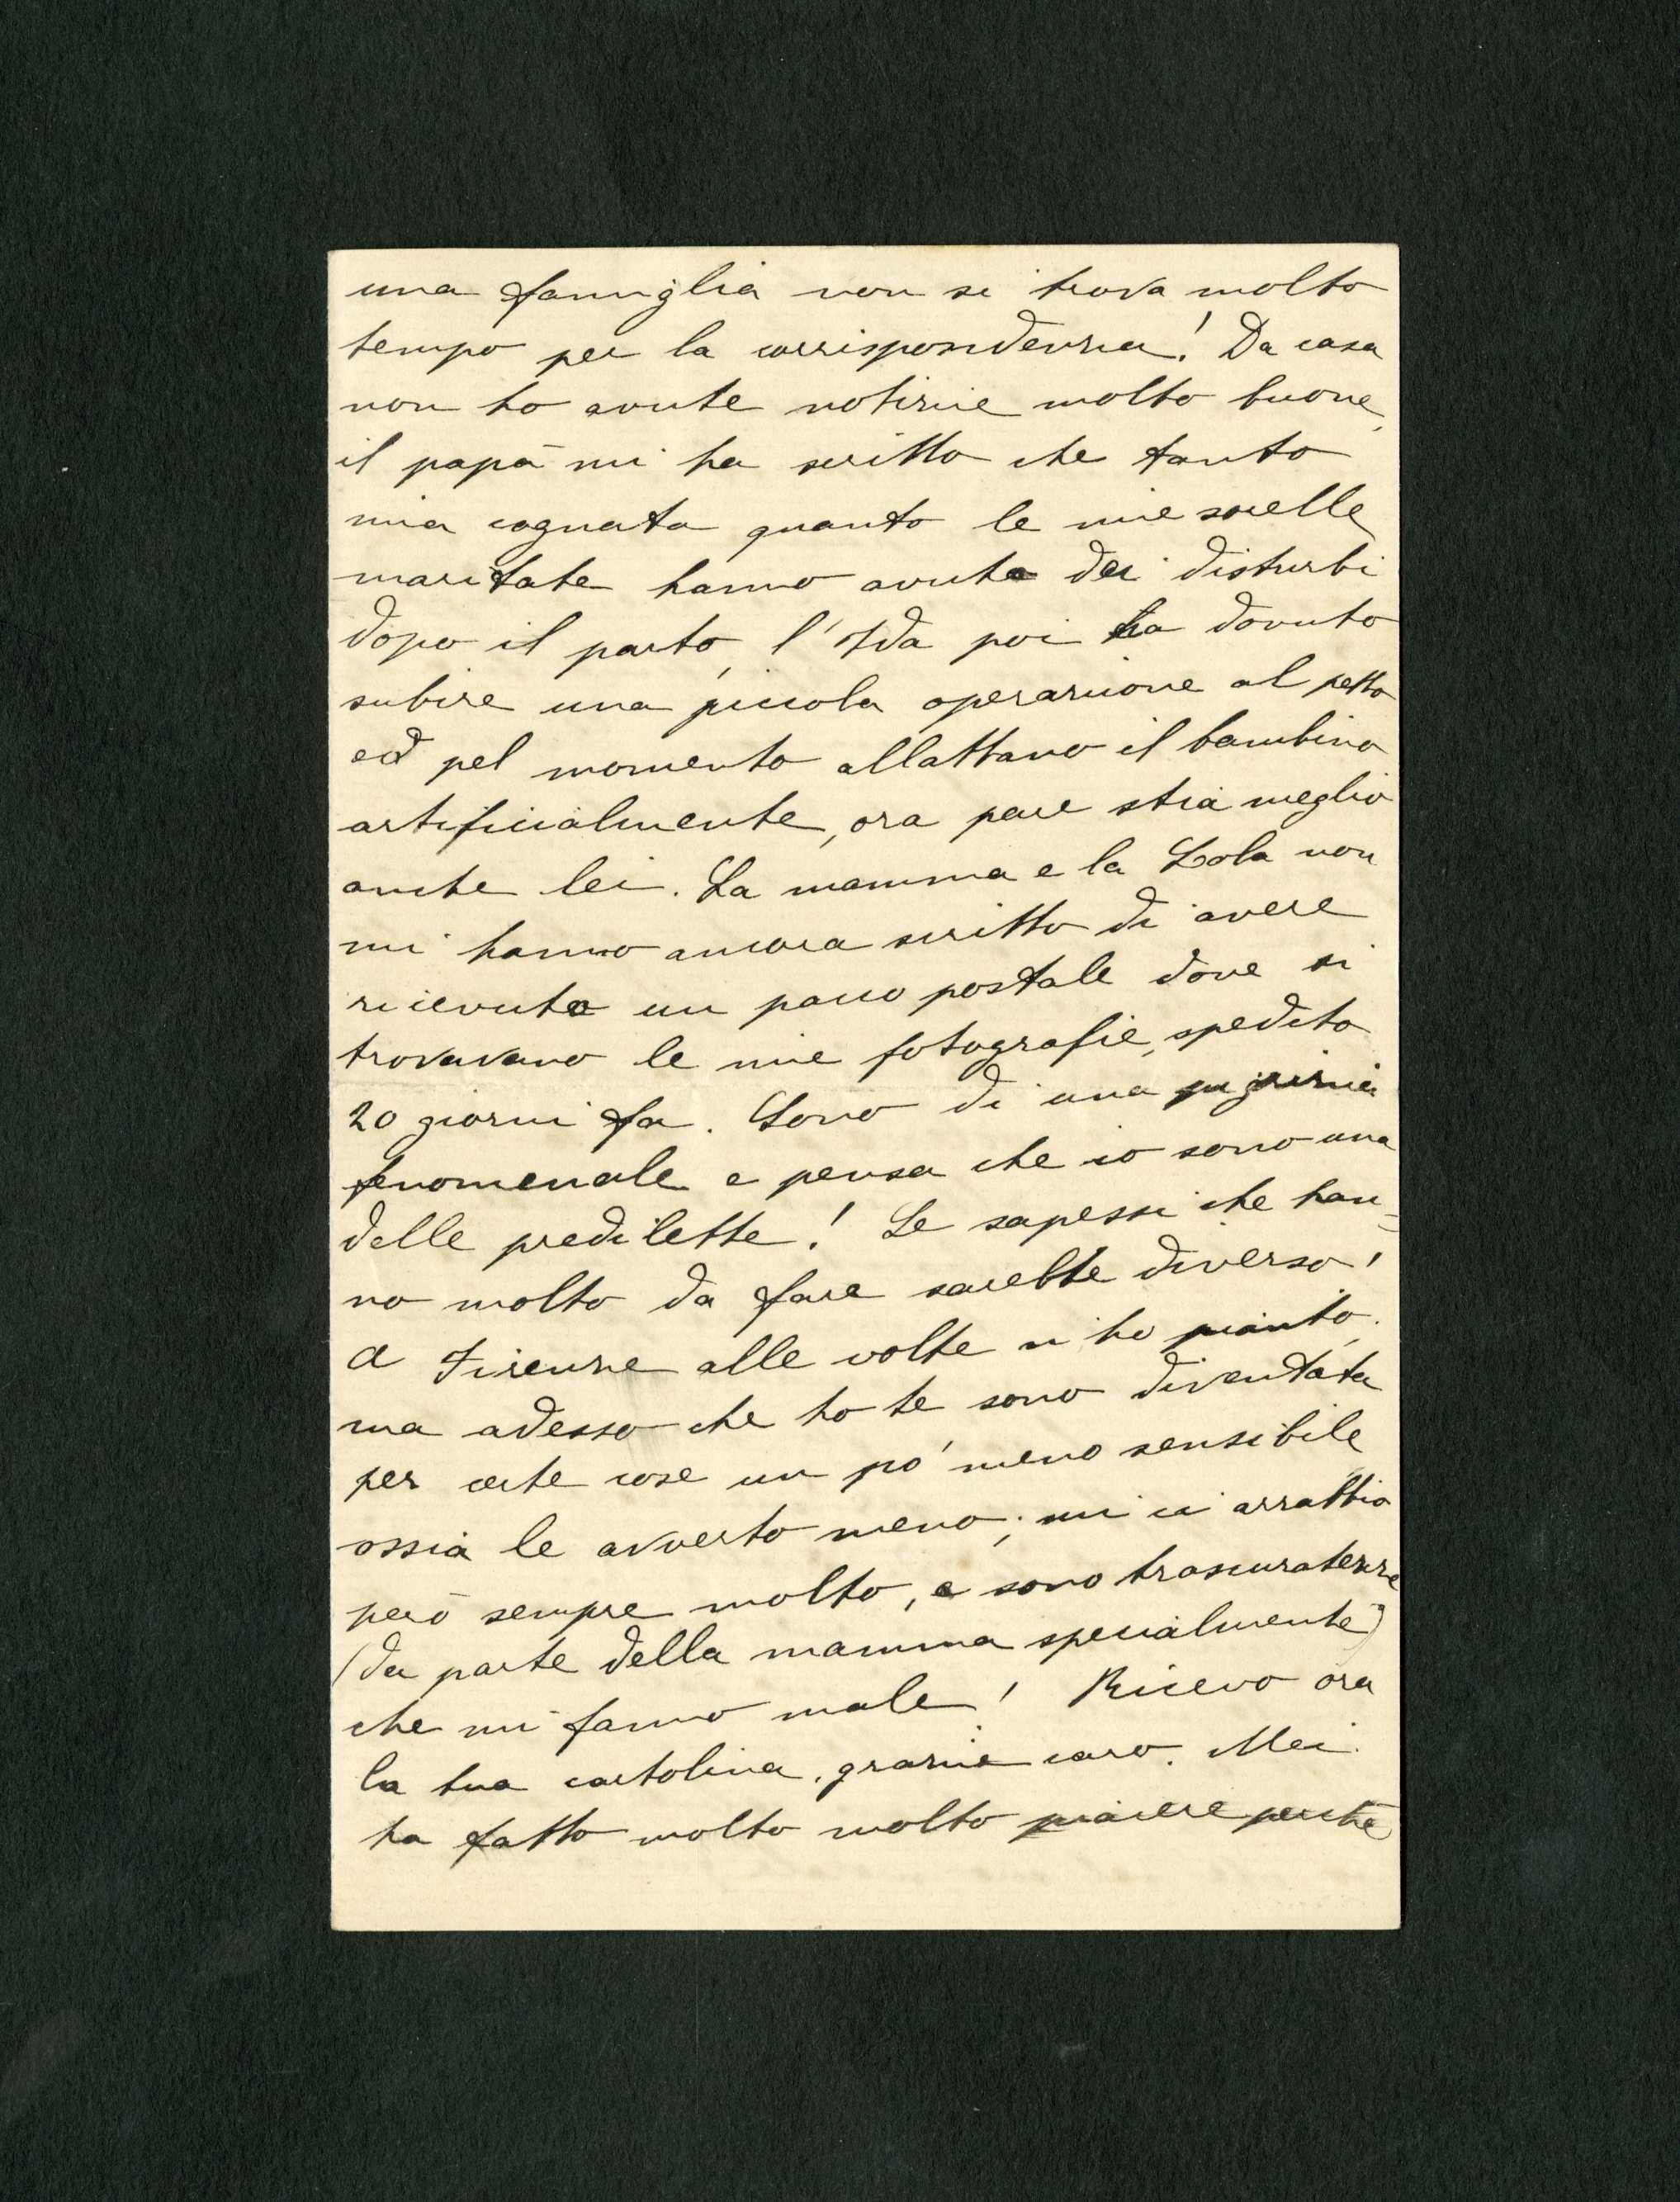 una famiglia non si trova molto
tempo per la corrispondenza! Da casa
non ho avute notizie molto buone,
il papà mi ha scritto che tanto
mia cognata quanto le mie sorelle
maritate hanno avuto dei disturbi
dopo il parto, l'Ida poi ha dovuto
subire una piccola operazione al petto
ed pel momento allattano il bambino
artificialmente, ora pare stia meglio
anche lei. La mamma e la Lola non
mi hanno ancora scritto di avere
ricevuto un pacco postale dove si
trovavano le mie fotografie, spedito
20 giorni fa. Sono di una pigrizia
fenomenale e pensa che io sono una
delle predilette! Se sapessi che han-
no molto da fare sarebbe diverso!
A Firenze alle volte n'ho pianto,
ma adesso che ho te sono diventata
per certe cose un pò meno sensibile
ossia le avverto meno; mi ci arrabbio
però sempre molto, e sono trascuratezze
(da parte della mamma specialmente)
che mi fanno male! Ricevo ora
la tua cartolina, grazie caro. Mei
ha fatto molto molto piacere perchè